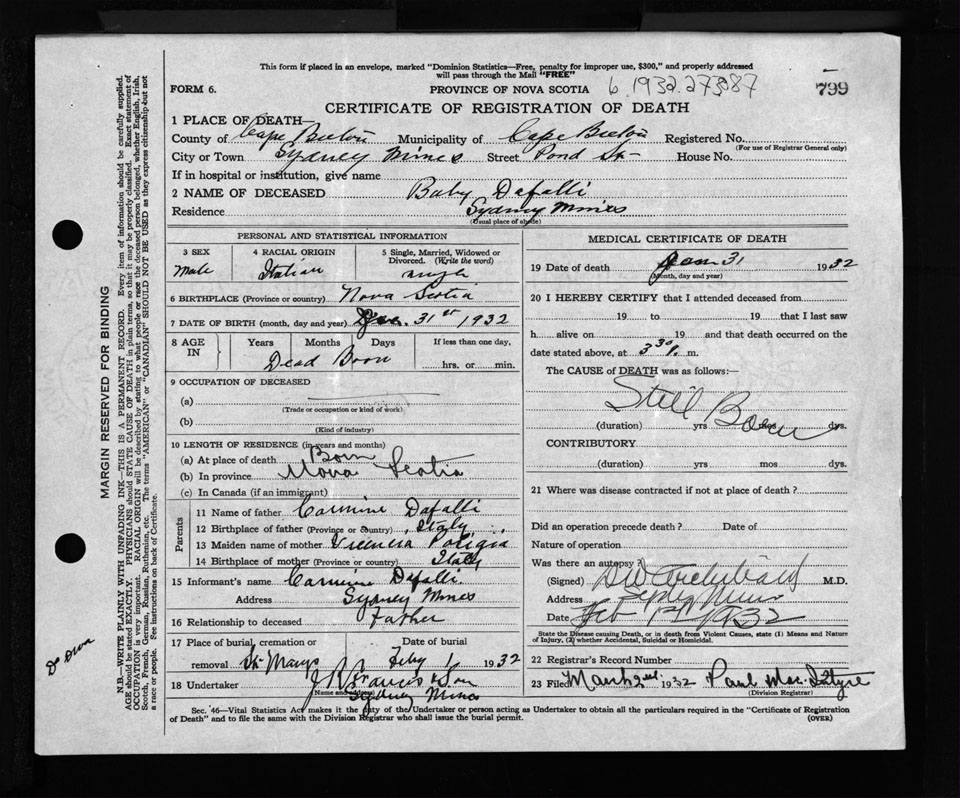 This form if placed in an envelope, marked "Dominion Statistics—Free, penalty for improper use, $300," and properly addressed
will pass through the Mail "FREE"
FORM 6.
PROVINCE OF NOVA SCOTIA
6.1932.273087
799
CERTIFICATE OF REGISTRATION OF DEATH
1 PLACE OF DEATH—
County of Cape Breton Municipality of Cape Breton Registered No.
(For use of Registrar General only)
City or Town Sydney Mines Street Pond St- House No.
If in hospital or institution, give name
2 NAME OF DECEASED Baby Dafalli
Residence Sydney Mines
(Usual place of abode)
PERSONAL AND STATISTICAL INFORMATION
3 SEX
Male
4 RACIAL ORIGIN
Italian
5 Single, Married, Widowed or
Divorced. (Write the word)
single
6 BIRTHPLACE (Province or country) Nova Scotia
7 DATE OF BIRTH (month, day and year) 31st 1932
8 AGE IN
Years Months Days
If less than one day,
hrs. or min.
Dead Born
9 OCCUPATION OF DECEASED
(a)
(Trade or occupation or kind of work)
(b)
(Kind of industry)
10 LENGTH OF RESIDENCE (in years and months)
(a) At place of death Born
(b) In province Nova Scotia
(c) In Canada (if an immigrant)
Parents
11 Name of father Carmine Dafalli
12 Birthplace of father (Province or country) Italy
13 Maiden name of mother
14 Birthplace of mother (Province or country) Italy
15 Informant's name Carmine Dafalli.
Address Sydney Mines
16 Relationship to deceased Father
17 Place of burial, cremation or
removal St Marys
Date of burial
Feby 1 1932
18 Undertaker J R Francis & Son
(Name and address)
Sydney Mines
MEDICAL CERTIFICATE OF DEATH
19 Date of death Jan 31 1932
(Month, day and year)
20 I HEREBY CERTIFY that I attended deceased from
19 to 19 that I last saw
h alive on 19 and that death occurred on the
date stated above, at 3 30 P. m.
The CAUSE of DEATH was as follows:—
Still Born
(duration) yrs mos dys.
CONTRIBUTORY
(duration) yrs mos dys.
21 Where was disease contracted if not at place of death?
Did an operation precede death? Date of
Nature of operation
Was there an autopsy?
(Signed) Archibald M.D.
Address Sydney Mines
Date Feb 1st 1932
State the Disease causing Death, or in death from Violent Causes, state (1) Means and Nature
of Injury, (2) whether Accidental, Suicidal or Homicidal.
22 Registrar's Record Number
23 Filed March 2nd 1932 Paul
(Division Registrar)
Sec. 46—Vital Statistics Act makes it the duty of the Undertaker or person acting as Undertaker to obtain all the particulars required in the "Certificate of Registration
of Death" and to file the same with the Division Registrar who shall issue the burial permit.
(OVER)
MARGIN RESERVED FOR BINDING
N.B.—WRITE PLAINLY WITH UNFADING INK—THIS IS A PERMANENT RECORD. Every item of information should be carefully supplied.
AGE should be stated EXACTLY. PHYSICIANS should STATE CAUSE OF DEATH in plain terms, so that it may be properly classified. Exact statement of
OCCUPATION is very important. RACIAL ORIGIN will be described by stating to what people or race the deceased person belonged, whether English, Irish,
Scotch, French, German, Russian, Ruthenian, etc. The terms "AMERICAN" or "CANADIAN" SHOULD NOT BE USED as they express citizenship but not
a race or people. See instructions on back of Certificate.